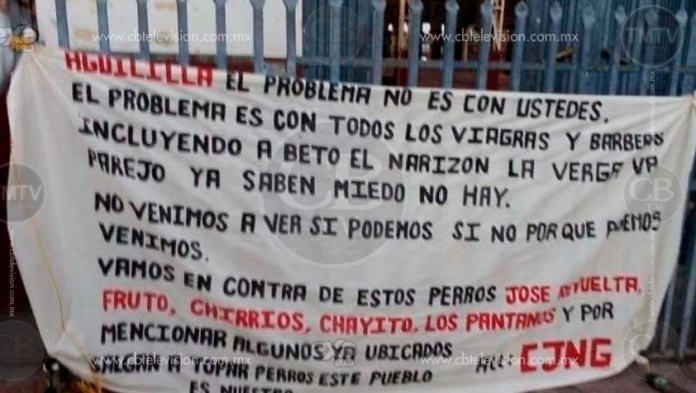 www.cbtelevision.com.mx
www.cbtelevision.com.mx
AGUILILLA EL PROBLEMA NO ES CON USTEDES.
EL PROBLEMA ES CON TODOS LOS VIAGRAS Y BARBERS
INCLUYENDO A BETO EL NARIZON LA VERGA VA
PAREJO YA SABEN MIEDO NO HAY.
NO VENIMOS A VER SI PODEMOS SI NO PORQUE PODEMOS
VENIMOS.
VAMOS EN CONTRA DE ESTOS PERROS JOSE REVUELTA,
FRUTO, CHIRRIOS, CHAYITO, LOS PANTANOS Y POR
MENCIONAR ALGUNOS YA UBICADOS
SALGAN A TOPAR PERROS ESTE PUEBLO CJNG
ES NUESTRO
www.cbtelevision.com.mx
www.cbtelevision.com.mx
TMTV
CB
TMTV
CB